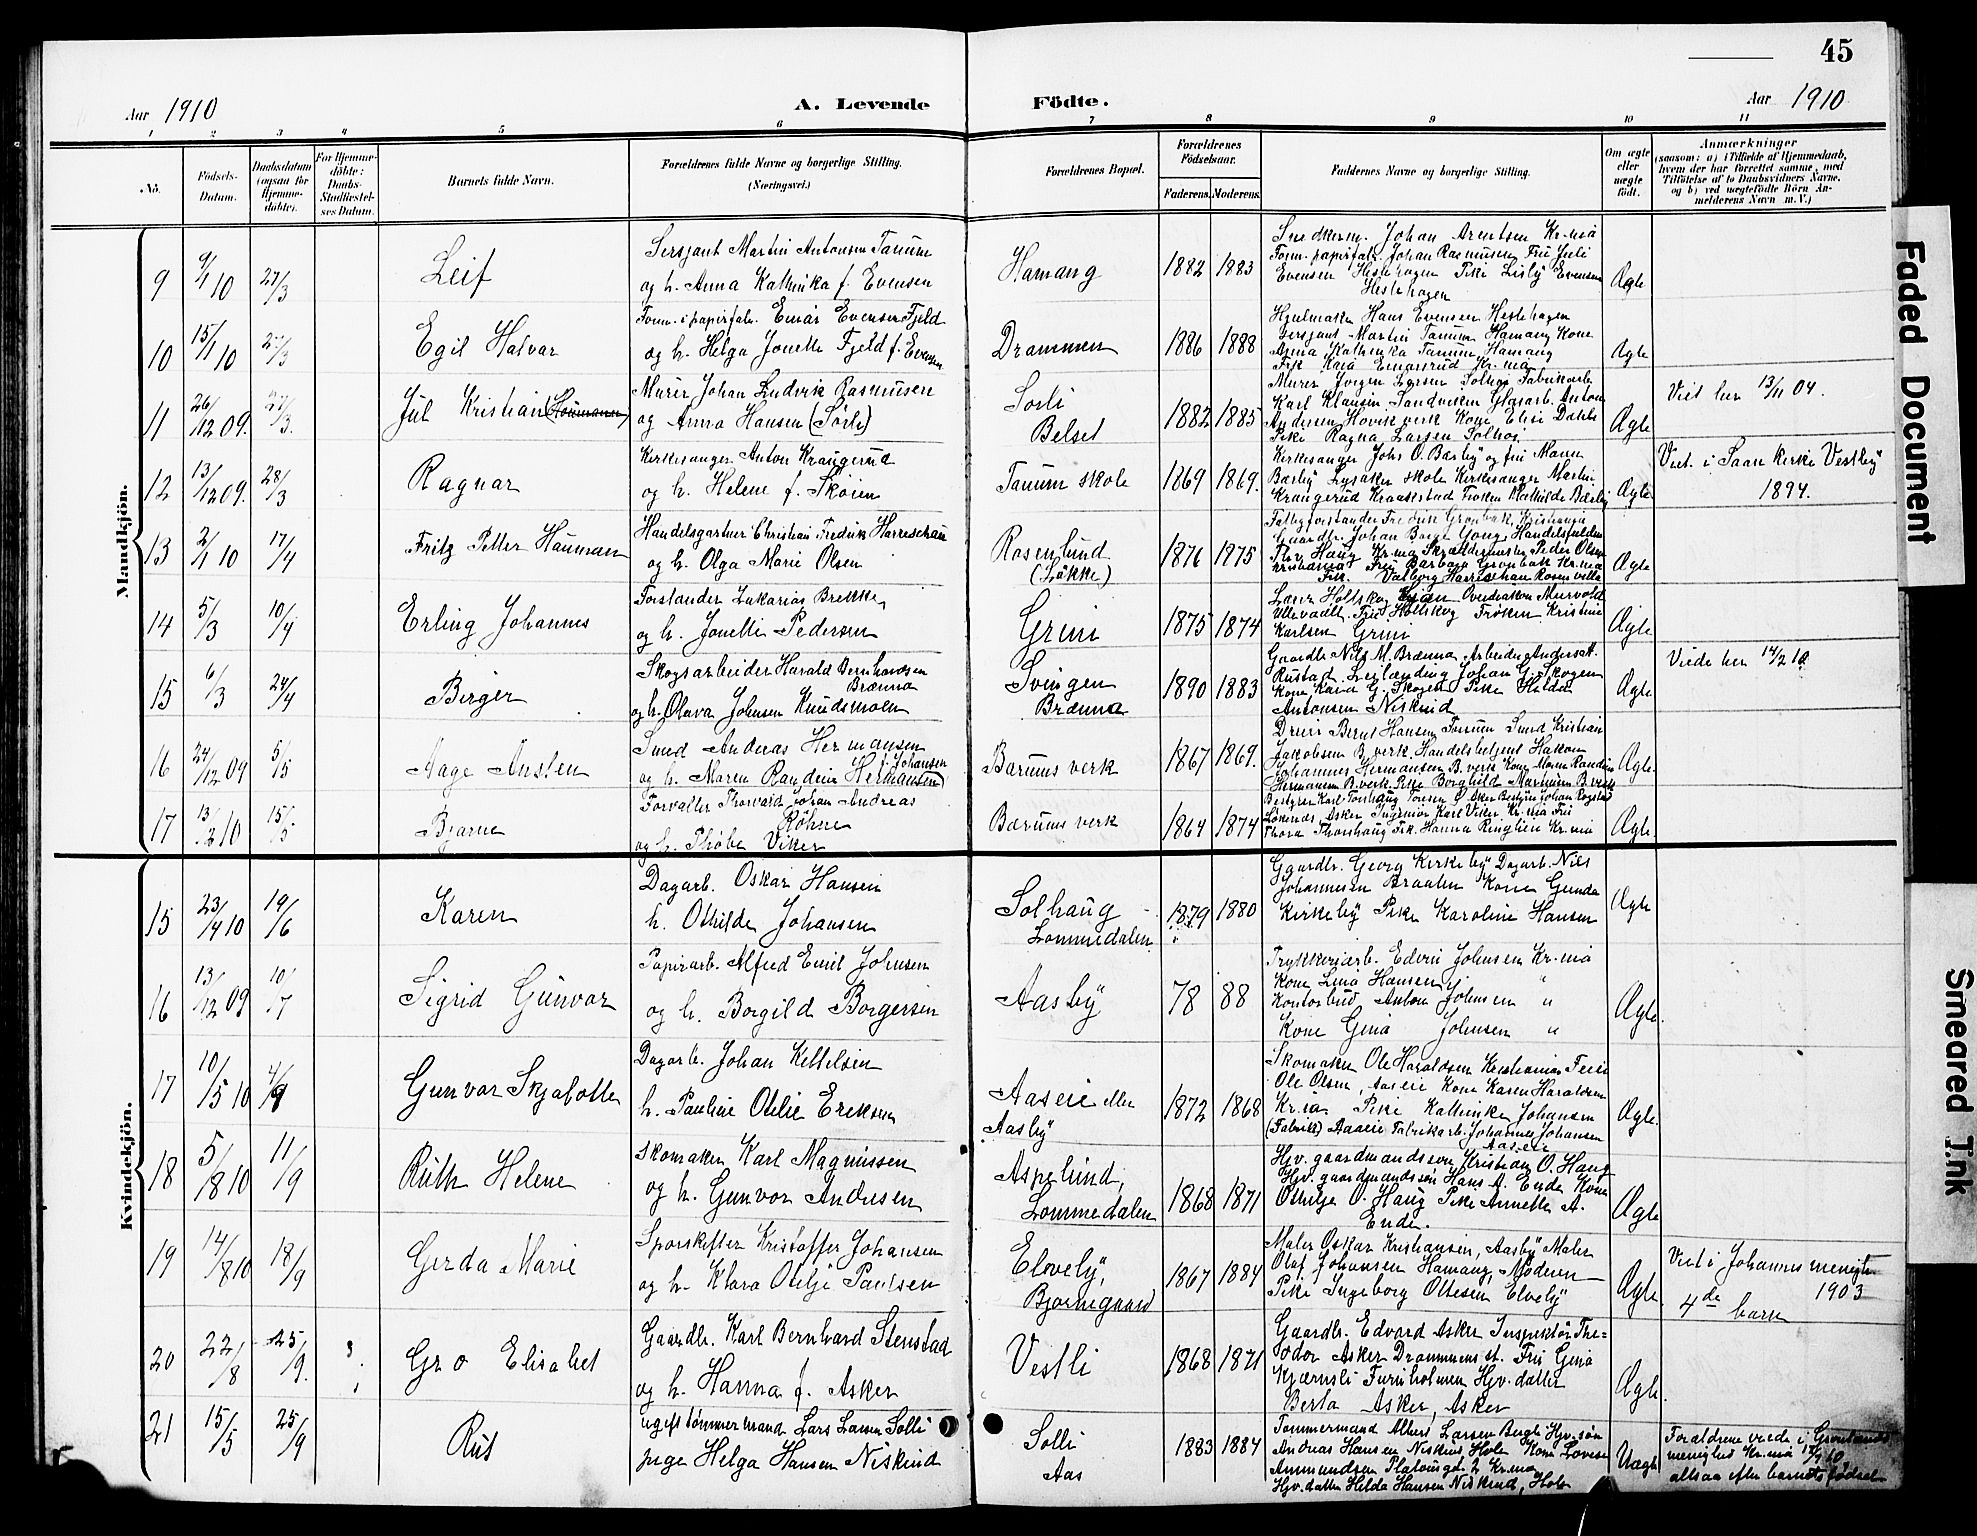 45
Aar 1910 A. Levende Födte. Aar 1910
1 2 3 4 5 6 7 8 9 10 11
No.
Födsels-Datum.
Daabsdatum (ogsaa for Hjemmedöbte).
For Hjemmedöbte: Daabs-Stadfæstelses Datum.
Barnets fulde Navn.
Forældrenes fulde Navne og borgerlige Stilling. (Næringsvei.)
Forældrenes Bopæl.
Forældrenes Födselsaar.
Faderens. Moderens.
Faddernes Navne og borgerlige Stilling.
Om ægte eller uægte födt.
Anmærkninger
(saasom: a) i Tilfælde af Hjemmedaab, hvem der har forrettet samme, med Tilföielse af to Daabsvidners Navne, og b) ved uægtefödte Börn Anmelderens Navn m. V.)
Mandkjön.
9 9/1 10 27/3 Leif
Sersjant Martin Antonsen Tanum
og h. Anna Kathinka f. Evensen
Hamang 1882 1883
Snedkerm. Johan Arentsen Kr-ia
Form. papirfab. Johan Rasmussen Fru Juli
Evensen Hestehagen Pike Lisby Evensen
Hestehagen
Ægte
10 15/1 10 27/3 Egil Halvar
Form. i papirfab. Einar Evensen Fjeld
og h. Helga Jonette Fjeld f. Evensen
Drammen 1886 1888
Hjulmaker Hans Evensen Hestehagen
Sersjant Martin Tanum Hamang Kone
Anna Kathinka Tanum Hamang
Frk Kaia Kr-ia
Ægte
11 26/12 09. 27/3. Jul Kristian
Murer Johan Ludvik Rasmusen
og Anna Hansen (Sörli)
Sörli
Belset
1882 1885
Murer Jörgen Larsen Solhog Fabrikarb
Karl Klausen Sandviken Glasarb. Anton
Andersen Hövik verk Kone Elise Dahls
Pike Ragna Larsen Solhog
Ægte
Viet her 13/11 04.
12 13/12 09. 28/3 Ragnar
Kirkesanger Anton Kraugerud
og h. Helene f. Sköien
Tanum skole 1869 1869.
Kirkesanger Johs O. Bærby og fru Maren
Bærby Lysaker skole Kirkesanger Martin
Kraugerud Kraakstad Fröken Mathilde Bærby
Ægte
Viet. i Saan Kirke Vestby
1894.
13 2/1 10 17/4 Fritz Petter Hauman
Handelsgartner Christian Fredrik Harreschau
og h. Olga Marie Olsen
Rosenlund
(Lökke)
1876 1875
Fattigforstander Fredrik Grönbæk, Kristiania
Gaardbr. Johan Borge Gong, Handelsfuldm
Thv Haug Kr-ia Skræddermester Peder Olsen
Kristiania Fru Barbara Grönbæk Kr-ia
Frk. Valborg Harreschau Rosenvilla
Ægte
14 5/3 10/4 Erling Johannes
Forstander Sakarias Brekke
og h. Jonette Pedersen
Grini 1875 1874
Lærer Holtskog
Ullevaalt. Fru Holtskog Fröken Kristine
Karlsen Grini
Ægte
15 6/3 24/4 Birger
Skogsarbeider Harald Bernhardsen
Brænna
og h. Olava Johnsen Knudsmoen
Svingen
Brænna
1890 1883
Gaardbr Nils M. Brænna, Arbeider Anders A.
Rustad Leilænding Johan G. Skogen
Kone Kaia G. Skogen Pike Hilda
Antonsen Niskind
Ægte
Viede her 14/2 10.
16 24/12 09 5/5 Aage Austen
Smed Andreas Hermansen
f. Johansen
og h. Maren Randine Hermansen)
Bærums verk 1867 1869.
Dreier Bernt Hansen Tanum Smed Kristian
Jakobsen B. verk. Handelsbetjent Hakon
Johannes Hermansen B. verk Kone Maren Randine
Hermansen B. verk Pike Borghild Martinsen B. verk
Ægte.
17 13/2 10 15/5. Bjarne
Forvalter Thorvald Johan Andreas
Röhne
og h. Thöba Viker
Bærums verk 1864 1874
Bestyrer Karl Torshaug Tonsen Ö Aker Bestyrer Johan Rogstad
Löxenes Asker Ingeniör Karl Viker Kr-ia Fru
Thora Thorshaug Frk. Hanna Ringlien Kr-ia
Ægte.
Kvindekjön.
15 23/4 10 19/6 Karen
Dagarb. Oskar Hansen
h. Othilde Johansen
Solhaug
Lommedalen
1879 1880
Gaardbr. Georg Kirkeby Dagarb. Nils
Johannesen Braaten Kone Gunda
Kirkeby Pike Karoline Hansen
Ægte
16 13/12 09 10/7 Sigrid Gunvor
Papirarb. Alfred Emil Johnsen
og h. Borgild Borgersen
Aasby 78 88
Trykkeriarb. Edvin Johnsen Kr-ia
Kone Lina Hansen "
Kontorbud Anton Johnsen "
Kone Gina Johnsen "
Ægte.
17 10/5 10 4/9 Gunvor Skjalotte
Dagarb. Johan Kettelsen
h. Pauline Otilie Eriksen
Aaseie eller
Aasby
1872 1868
Skomaker Ole Haraldsen Kristiania Feier
Ole Olsen, Aaseie Kone Karen Haraldsen
Kr.ia Pike Kathinka Johansen
(Fabrik) Aaseie Fabrikarb. Johannes Johansen
Aaseie
Ægte.
18 5/8 10 11/9 Ruth Helene
Skomaker Karl Magnussen
og h. Gunvor Andresen
Aspelund,
Lommedalen
1868 1871
Hjv. gaardmandssøn Kristian O. Haug
Hjv. gaardmandssøn Hans A. Ende Kone
Othilje O. Haug Pike Annette A.
Ende.
Ægte
19 14/8 10 18/9 Gerda Marie
Sporskifter Kristoffer Johansen
og h. Klara Otilje Paulsen
Elveby,
Bjornegaard
1867 1884
Maler Oskar Kristiansen, Aasby Maler
Olaf Johansen Hamang, Moderen
Pike Ingeborg Ottesen Elveby
Ægte.
Viet i Johannes menigh
1903
4de barn
20 22/8 25/9. Gro Elisabet
Gaardbr. Karl Bernhard Stenstad
og h. Hanna f. Asker
Vestli 1868 1871
Gaardbr. Edvard Asker Inspektör The=
odor Asker Drammens st. Fru Gina
Kjærnsli Furuholmen Hjv. datter
Berta Asker, Asker
Ægte.
21 15/5 25/9 Rut
ugift tömmermand Lars Larsen Solli
pige Helga Hansen Niskind
Solli
Aas
1883 1884
Tømmermand Albert Larsen Berglı Hjv. søn
Andreas Hansen Niskind Hole Kone Lovise
Ammundsen Platougt. 2 Kr-ia
Hjv. datter Hilda Hansen Niskind, Hole
Uægte
Forældrene viede i Grönlands
menighed Kr-ia 17/9 10,
altsaa efter barnets födsel
Faded Document
Smeared Ink